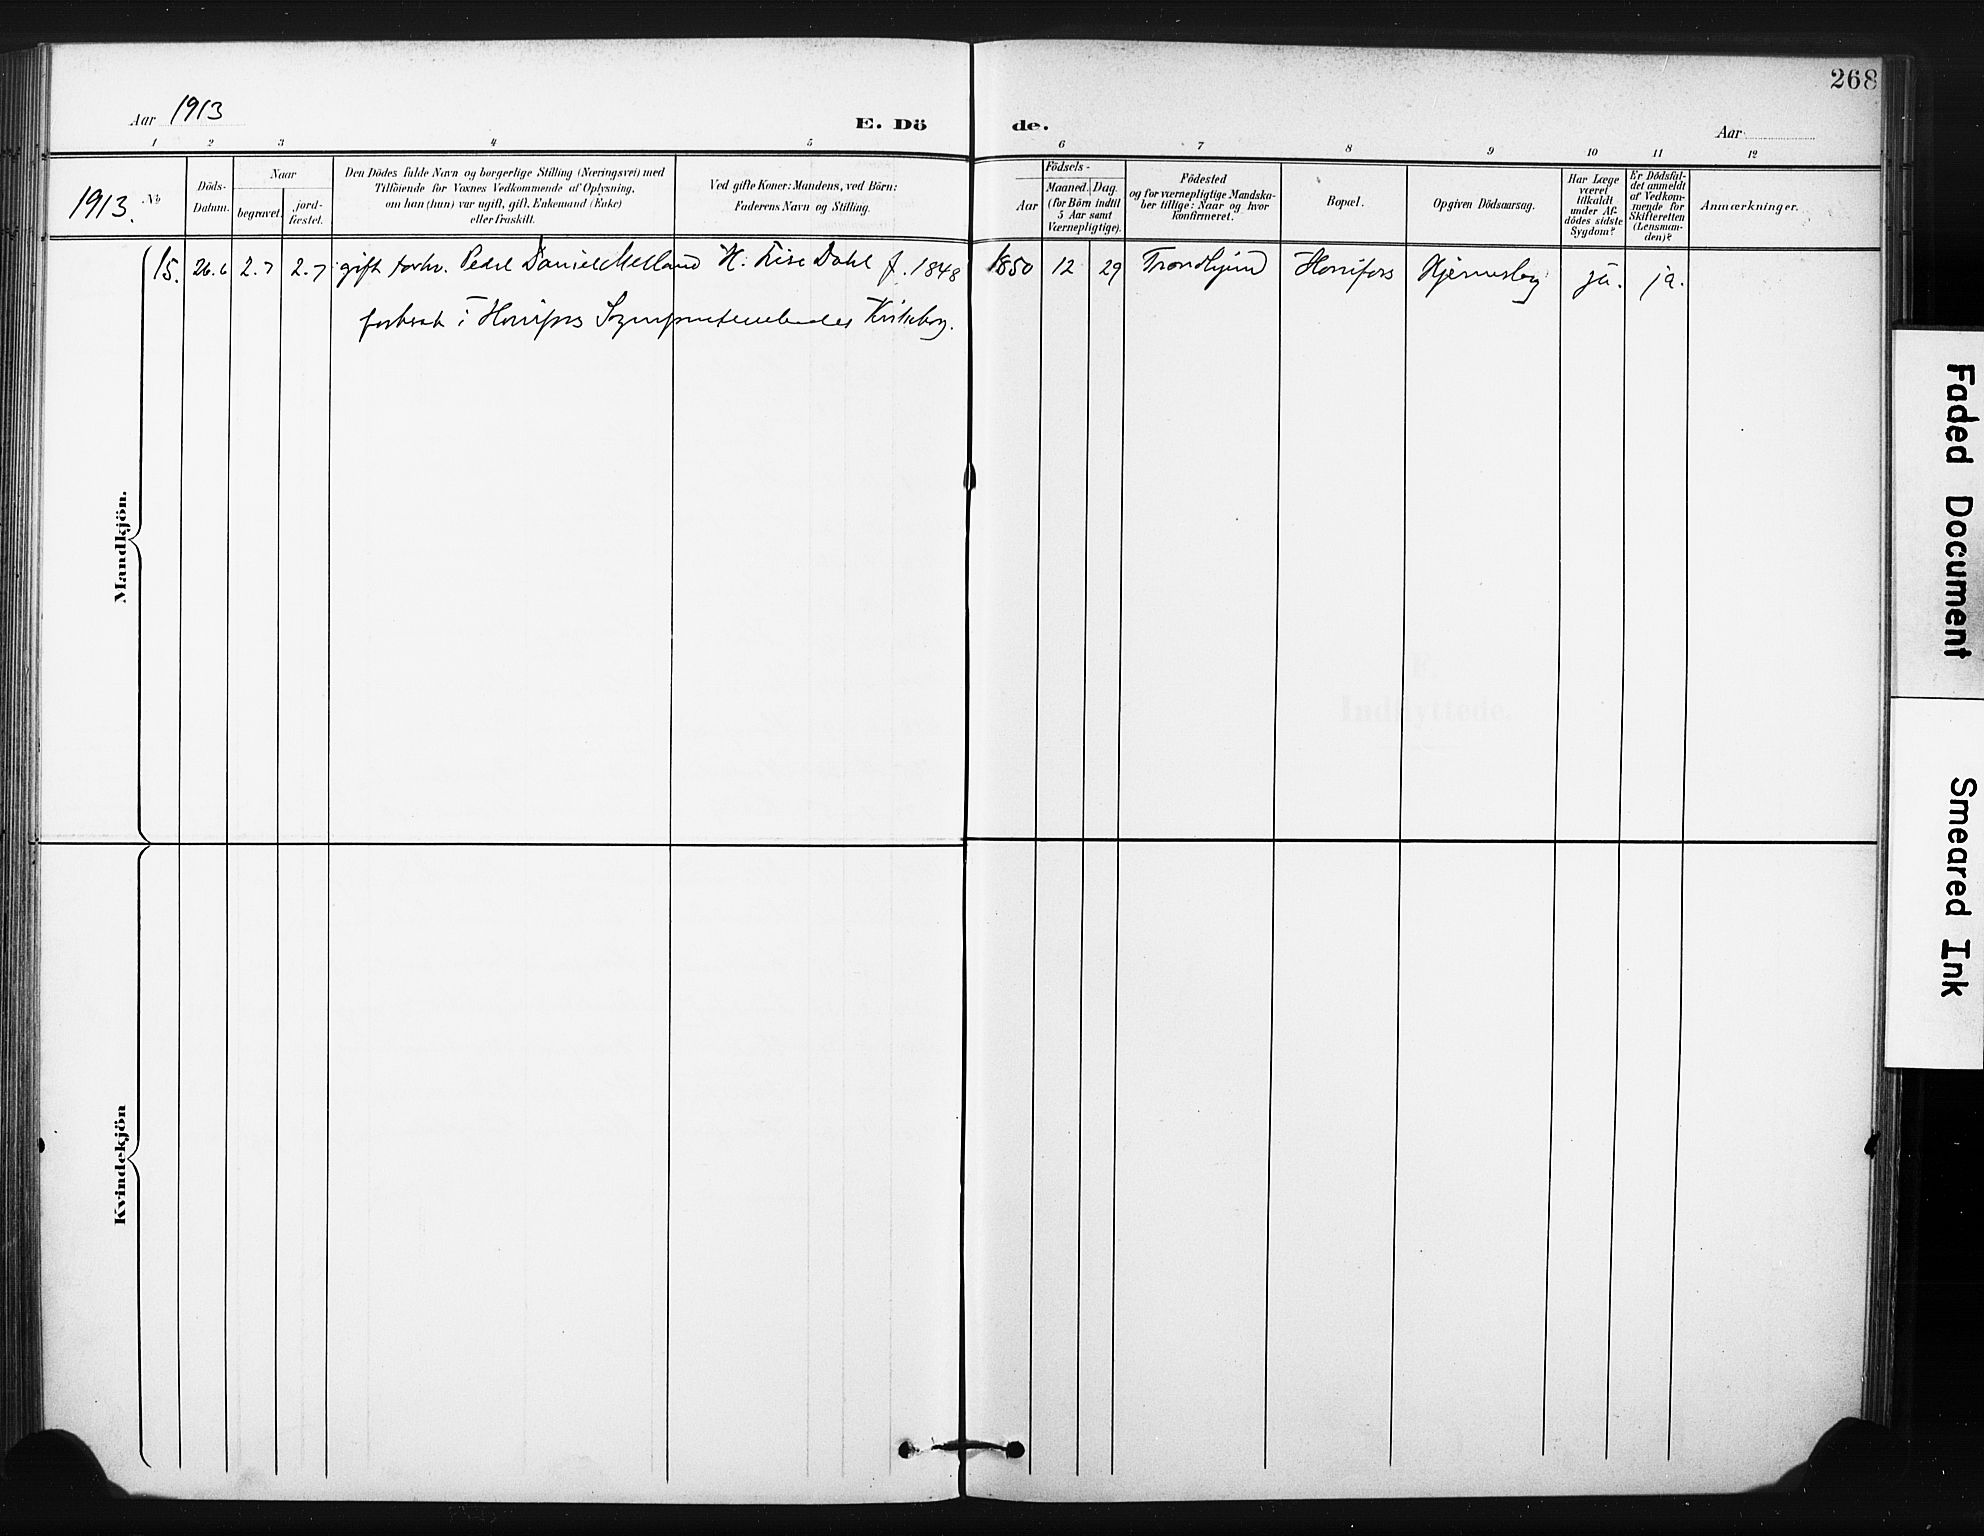 268
Aar 1913
E. Dö de.
Aar
1 2 3 4 5 6 7 8 9 10 11 12
1913.
No
Döds-Datum.
Naar
begravet.
jord-fæstet.
Den Dödes fulde Navn og borgerlige Stilling (Næringsvei) med
Tilföiende for Voxnes Vedkommende af Oplysning,
om han (hun) var ugift, gift, Enkemand (Enke)
eller fraskilt.
Ved gifte Koner: Mandens, ved Börn:
Faderens Navn og Stilling.
Födsels-
Aar
Maaned. Dag.
(for Börn indtil
5 Aar samt
Værnepligtige).
Födested
og for værnepligtige Mandska-
ber tillige: Naar og hvor
konfirmeret.
Bopæl.
Opgiven Dödsaarsag.
Har Læge
været
tilkaldt
under Af-
dödes sidste
Sygdom?
Er Dödsfal-
det anmeldt
af Vedkom-
mende for
Skifteretten
(Lensman-
den)?
Anmærkninger.
15. 26.6 2.7 2.7 gift Peder Daniel Melland H. Lise Dahl f. 1848 1850 12 29 Trondhjem Hjerneslag ja. ja.
i
Mandkjön.
Kvindekjön
F.
Indflyttede.
Faded Document
Smeared Ink